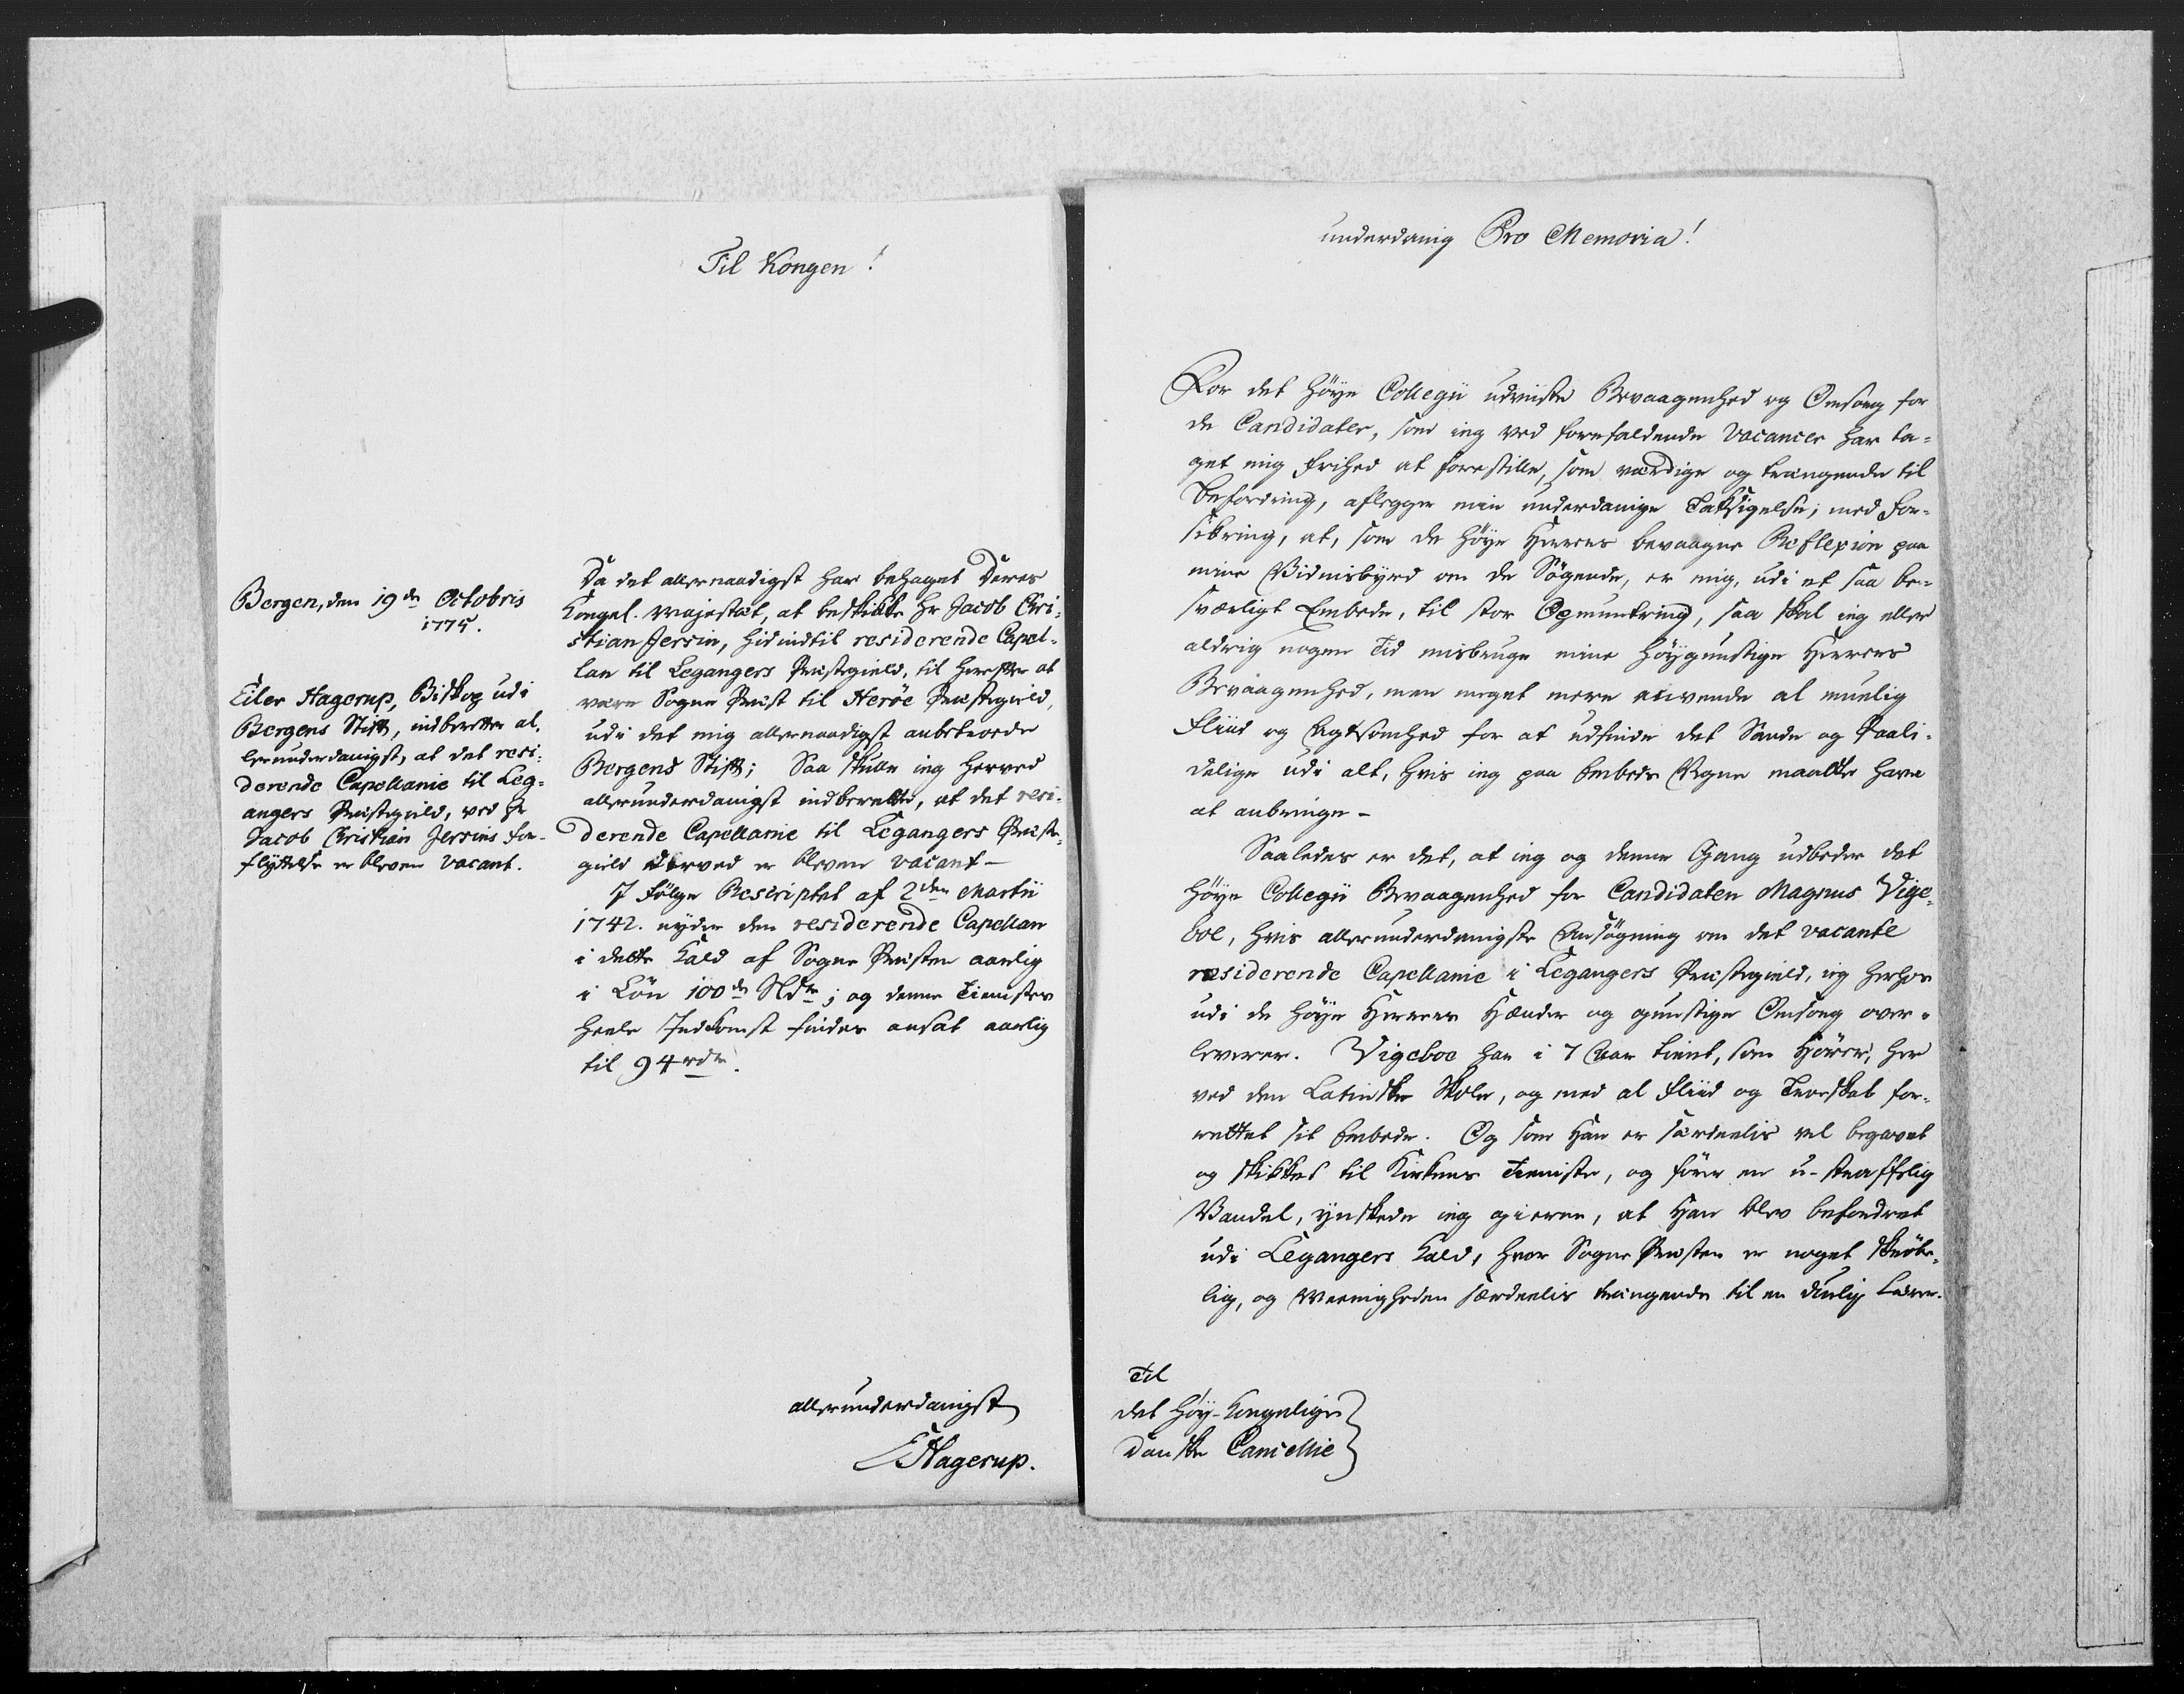 Til Kongen!
Bergen, den 19de Octobris
1775.
Eiler Hagerup, Biskop udi
Bergens Stift, indberetter al-
lerunderdanigst, at det resi-
derende Capellanie til Leg-
angers Præstegield, ved Hr
Jacob Christian Jersins for-
flyttelse er bleven vacant.
Da det allernaadigst har behaget Deres
Kongel. Majestæt, at beskikke Hr Jacob Chri-
stian Jersin, hidindtil residerende Capel-
lan til Legangers Præstegield, til herefter at
være Sogne Præst til Herøe Præstegield,
udi det mig allernaadigst anbetroede
Bergens Stift; Saa skulle ieg herved
allerunderdanigst indberette, at det resi-
derende Capellanie til Legangers Præste-
gield derved er bleven vacant-
I Følge Rescriptet af 2den Martii
1742. nyder den residerende Capellan
i dette Kald af Sogne Præsten aarlig
i Løn 100de Rdr; og denne Tienistes
heele Indkomst findes ansat aarlig
til 94 rdr.
allerunderdanigst
EHagerup.
underdanig Pro Memoria!
For det høye Collegii udviiste Bevaagenhed og Omsorg for
de Candidater, som ieg ved forefaldende Vacancer har ta-
get mig Frihed at forestille, som værdige og trængende til
Befordring, aflegger min underdanige Taksigelse; med For-
sikring, at, som de høye Herrers bevaagne Reflexion paa
mine Vidnisbyrd om de Søgende, er mig, udi et saa be-
sværligt Embede, til stor Opmuntring, saa skal ieg eller
aldrig nogen Tid misbruge mine høygunstige Herrers
Bevaagenhed, men meget mere anvende al muelig
Fliid og Agtsomhed for at udfinde det Sande og Paali-
delige udi alt, hvis ieg paa Embeds Vegne maatte have
at anbringe-
Saaledes er det, at ieg og denne Gang udbeder det
høye Collegii Bevaagenhed for Candidaten Magnus Vige-
boe, hvis allerunderdanigste Ansøgning om det vacante
residerende Capellanie i Legangers Præstegield, ieg herhos
udi de høye Herrers Hænder og gunstige Omsorg over-
leverer. Vigeboe har i 7 Aar tient, som Hører, her
ved den Latinske Skole, og med al Fliid og Troeskab for-
rettet sit Embede. Og som Han er særdeelis vel begavet
og skikket til Kirkens Tieniste, og fører en u-straffelig
Vandel, ynskede ieg gierne, at Han blev befordret
udi Legangers Kald, hvor Sogne Præsten er noget skrøbe-
lig, og Meenigheden særdeelis trængende til en duelig Lærer.
Til
det Høy-Kongelige
Danske Cancellie